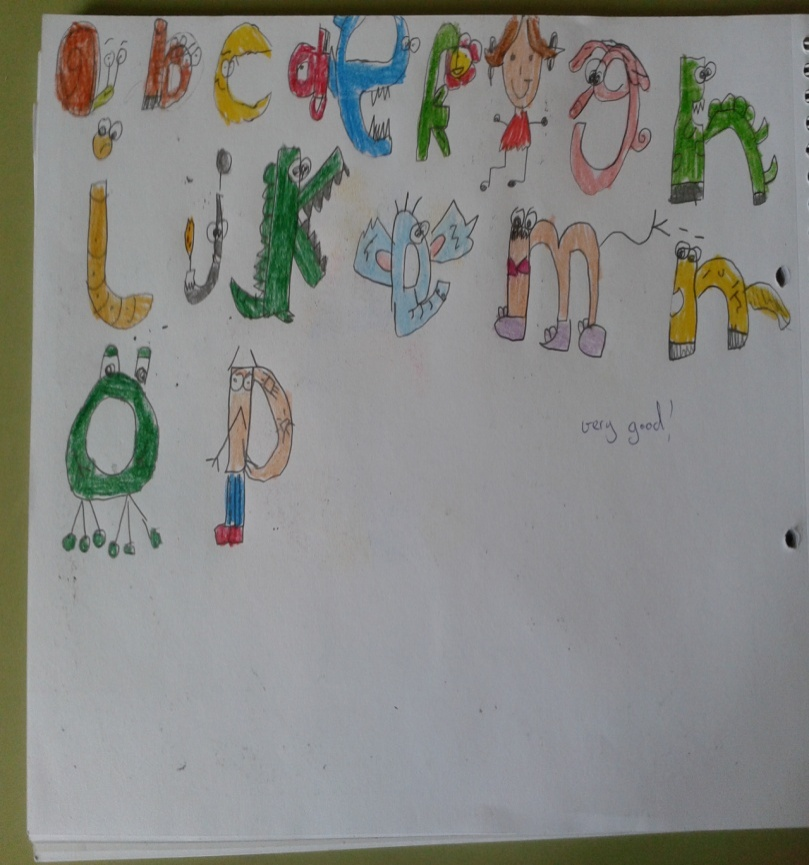 a b c d e f g h
i j k l m n
o p
very good!